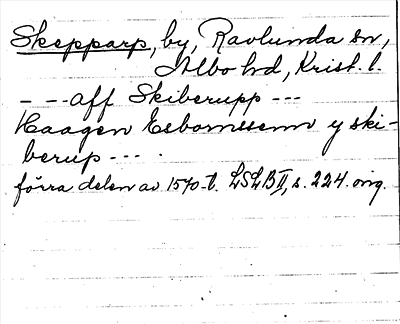 Skepparp, by, Ravlunda sn,
Albo hd, Krist. l.
- - - aff Skiberupp - - -
Haagen Esbornssenn y ski-
berup - - - .
förra delen av 1570-t. LSLB II, s. 224. orig.